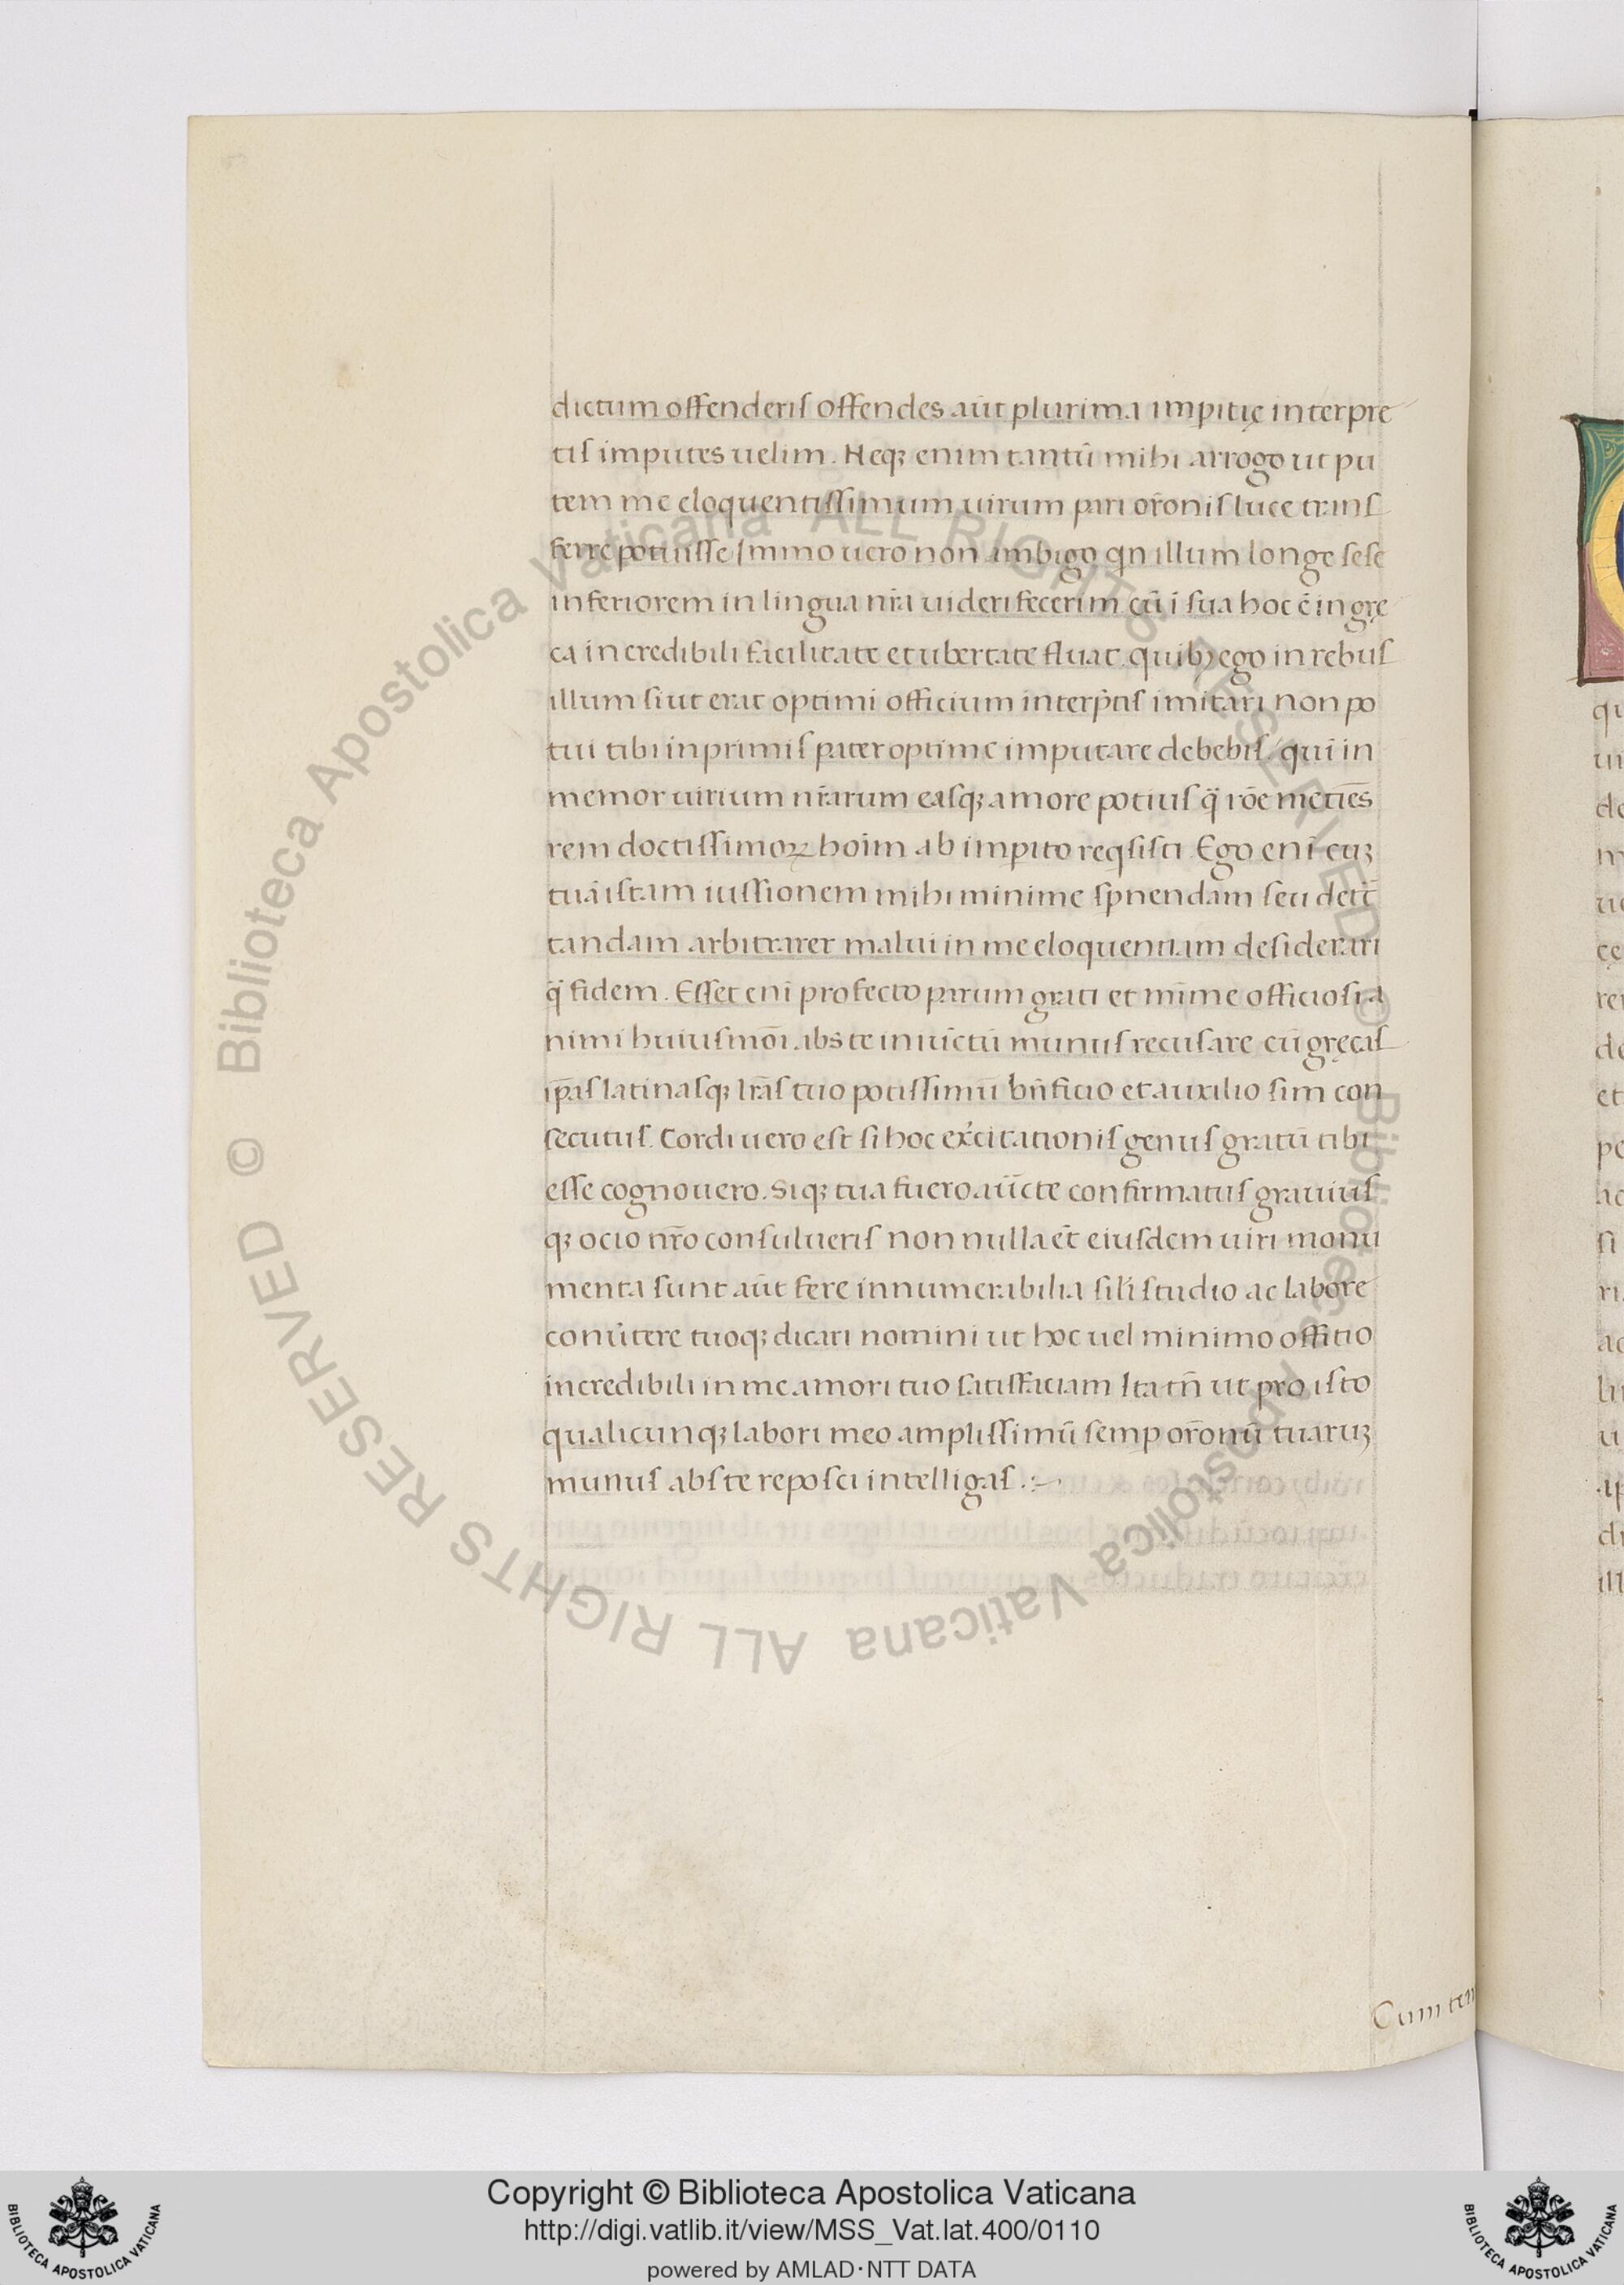 dictum offenderis offendes aūt plurima impitię interpre
tis imputes uelim. Neqȝ enim tantū mihi arrogo ut pu
tem me eloquentissimum uirum pari or̄onis luce trans
ferre potuisse Immo uero non ambigo qn illum longe sese
inferiorem in lingua nr̄a uideri fecerim cū ī sua hoc ē in gre
ca incredibili facilitate et ubertate fluat. quibȝ ego in rebus
illum siut erat optimi officium interp̄tis imitari non po
tui tibi inprimis pater optime imputare debebis, qui in
memor uirium nr̄arum easqȝ amore potius q̄ rōe metiēs
rem doctissimoꝝ hoīm ab impito reqsisti. Ego enī cuȝ
tuā istam iussionem mihi minime sp̄nendam seu detc̄
tandam arbitrarer malui in me eloquentiam desiderari
q̄ fidem. Esset enī profecto parum grati et mīme officiosi a
nimi huiusmōi abs te iniūctū munus recusare cū gręcas
ip̄as latinasqȝ lr̄as tuo potissimū bn̄ficio et auxilio sim con
secutus. Cordi uero est si hoc ex̄citationis genus gratū tibi
esse cognouero. Siqȝ tua fuero aūcte confirmatus grauius
qȝ ocio nr̄o consulueris non nulla et̄ eiusdem uiri monu
menta sunt aūt fere innumerabilia sili studio ac labore
conūtere tuoqȝ dicari nomini ut hoc uel minimo offitio
incredibili in me amori tuo satisfaciam Ita tn̄ ut pro isto
qualicunqȝ labori meo amplissimū semp or̄onū tuaruȝ
munus abs te reposci intelligas .:~
Cum ten
Biblioteca Apostolica Vaticana ALL RIGHTS RESERVED © Biblioteca Apostolica Vaticana ALL RIGHTS RESERVED ©
Copyright © Biblioteca Apostolica Vaticana
http://digi.vatlib.it/view/MSS_Vat.lat.400/0110
powered by AMLAD·NTT DATA
BIBLIOTECA APOSTOLICA VATICANA
BIBLIOTECA APOSTOLICA VATICANA